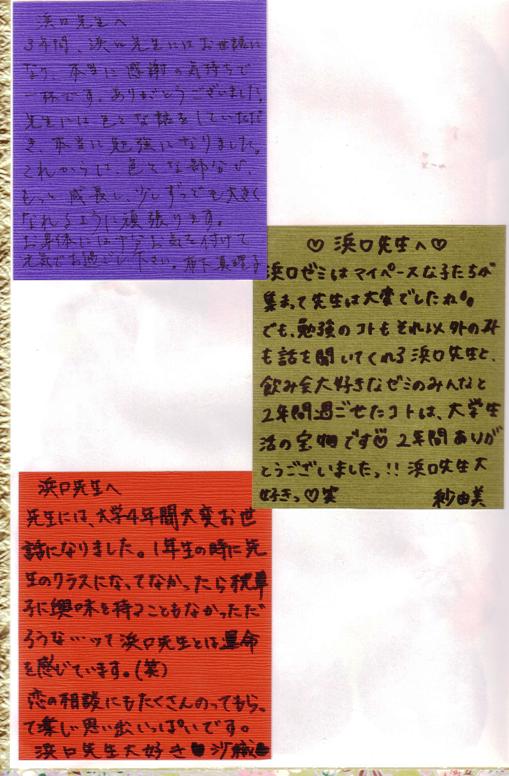 浜口先生へ
3年間、浜口先生にはお世話に
なり、本当に感謝の気持ちで
一杯です。ありがとうございました。
先生には色々な話をしていただ
き、本当に勉強になりました。
これからは、色々な部分で、
もっと成長し、少しずつでも大きく
なれるように頑張ります。
お身体には十分お気を付けて
元気でお過ごし下さい。
♡浜口先生へ♡
浜口ゼミはマイペースな子たちが
集まって先生は大変でしたね。
でも、勉強のコトもそれ以外のコト
も話を聞いてくれる浜口先生と、
飲み会大好きなゼミのみんなと
2年間過ごせたコトは、大学生
活の宝物です♡ 2年間ありが
とうございましたっ!! 浜口先生大
好きっ♡笑 紗由美
浜口先生へ
先生には、大学4年間大変お世
話になりました。1年生の時に先
生のクラスになってなかったら秋華
子に興味を持つこともなかっただ
ろうな…って浜口先生とは運命
を感じています。(笑)
恋の相談にもたくさんのってもらっ
て楽しい思い出いっぱいです。
浜口先生大好き♥沙織♥